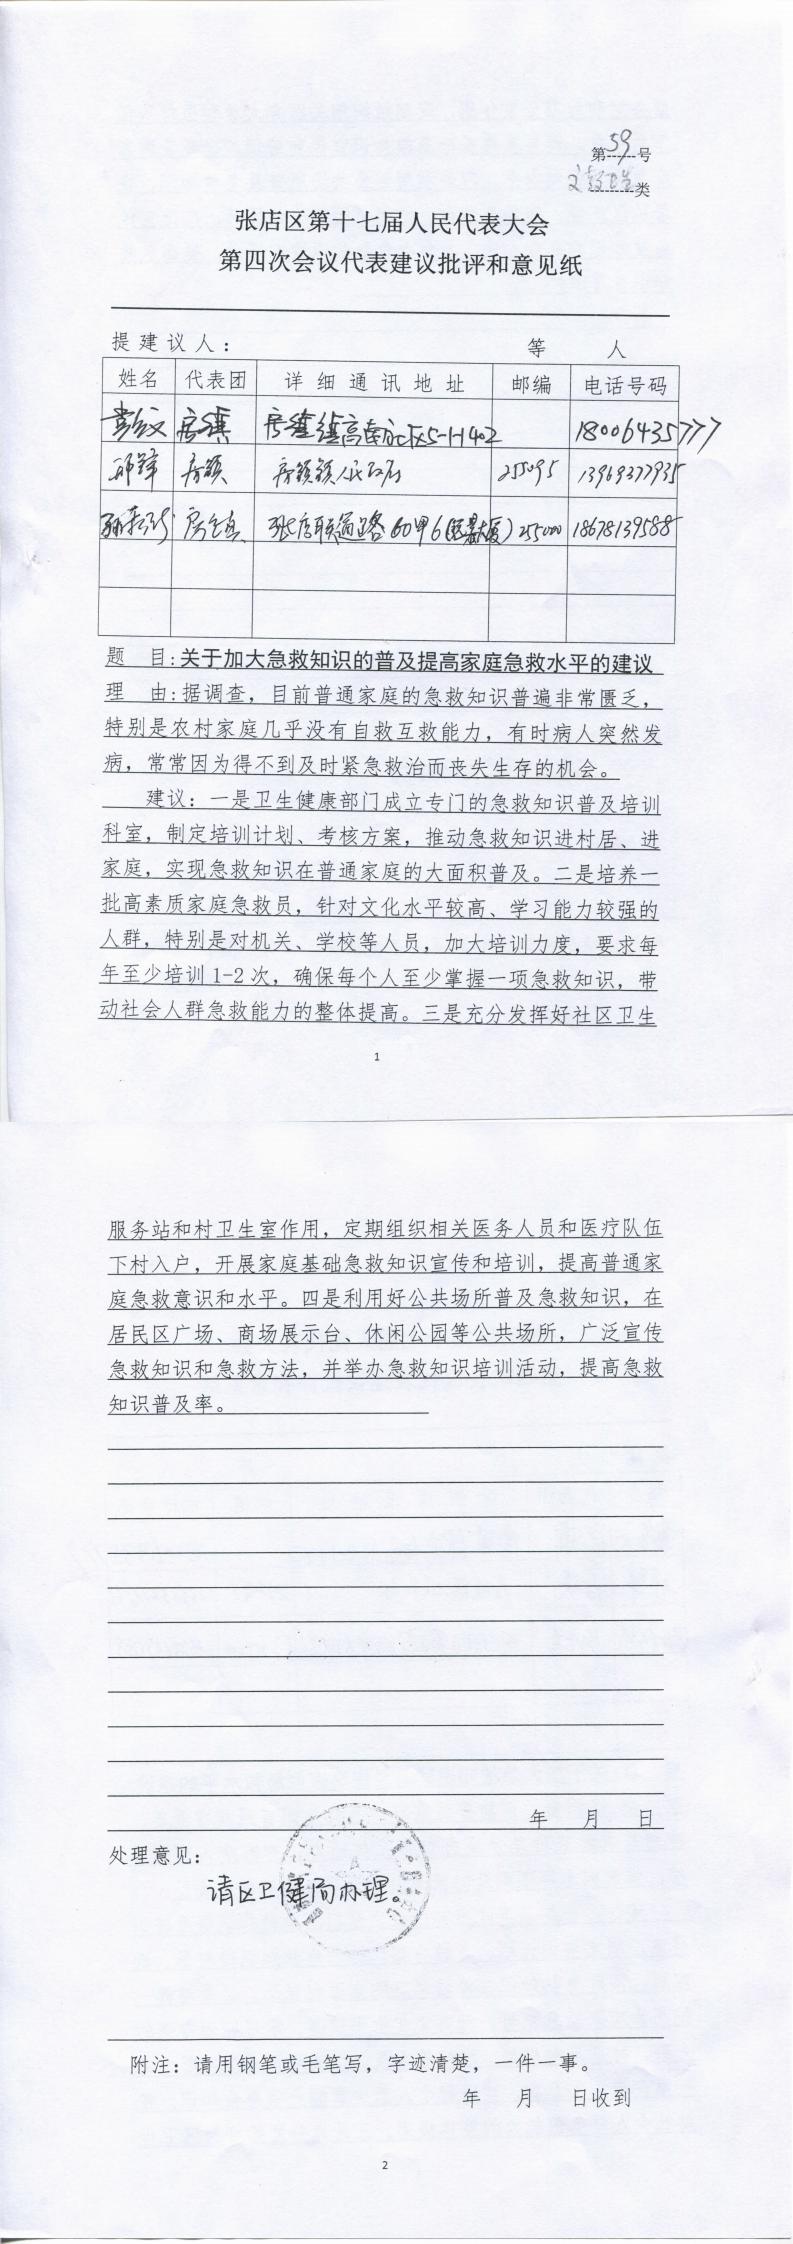 第59号
文教卫生类
张店区第十七届人民代表大会
第四次会议代表建议批评和意见纸
提建议人： 等 人
姓名 代表团 详细通讯地址 邮编 电话号码
房镇 18006435777
房镇 房镇镇人民政府 255095 13969377935
房镇 张店联通路60甲6 255000 18678139588
题 目:关于加大急救知识的普及提高家庭急救水平的建议
理 由:据调查，目前普通家庭的急救知识普遍非常匮乏，
特别是农村家庭几乎没有自救互救能力，有时病人突然发
病，常常因为得不到及时紧急救治而丧失生存的机会。
建议：一是卫生健康部门成立专门的急救知识普及培训
科室，制定培训计划、考核方案，推动急救知识进村居、进
家庭，实现急救知识在普通家庭的大面积普及。二是培养一
批高素质家庭急救员，针对文化水平较高、学习能力较强的
人群，特别是对机关、学校等人员，加大培训力度，要求每
年至少培训1-2次，确保每个人至少掌握一项急救知识，带
动社会人群急救能力的整体提高。三是充分发挥好社区卫生
1
服务站和村卫生室作用，定期组织相关医务人员和医疗队伍
下村入户，开展家庭基础急救知识宣传和培训，提高普通家
庭急救意识和水平。四是利用好公共场所普及急救知识，在
居民区广场、商场展示台、休闲公园等公共场所，广泛宣传
急救知识和急救方法，并举办急救知识培训活动，提高急救
知识普及率。
年 月 日
处理意见：
请区卫健局办理。
附注：请用钢笔或毛笔写，字迹清楚，一件一事。
年 月 日收到
2